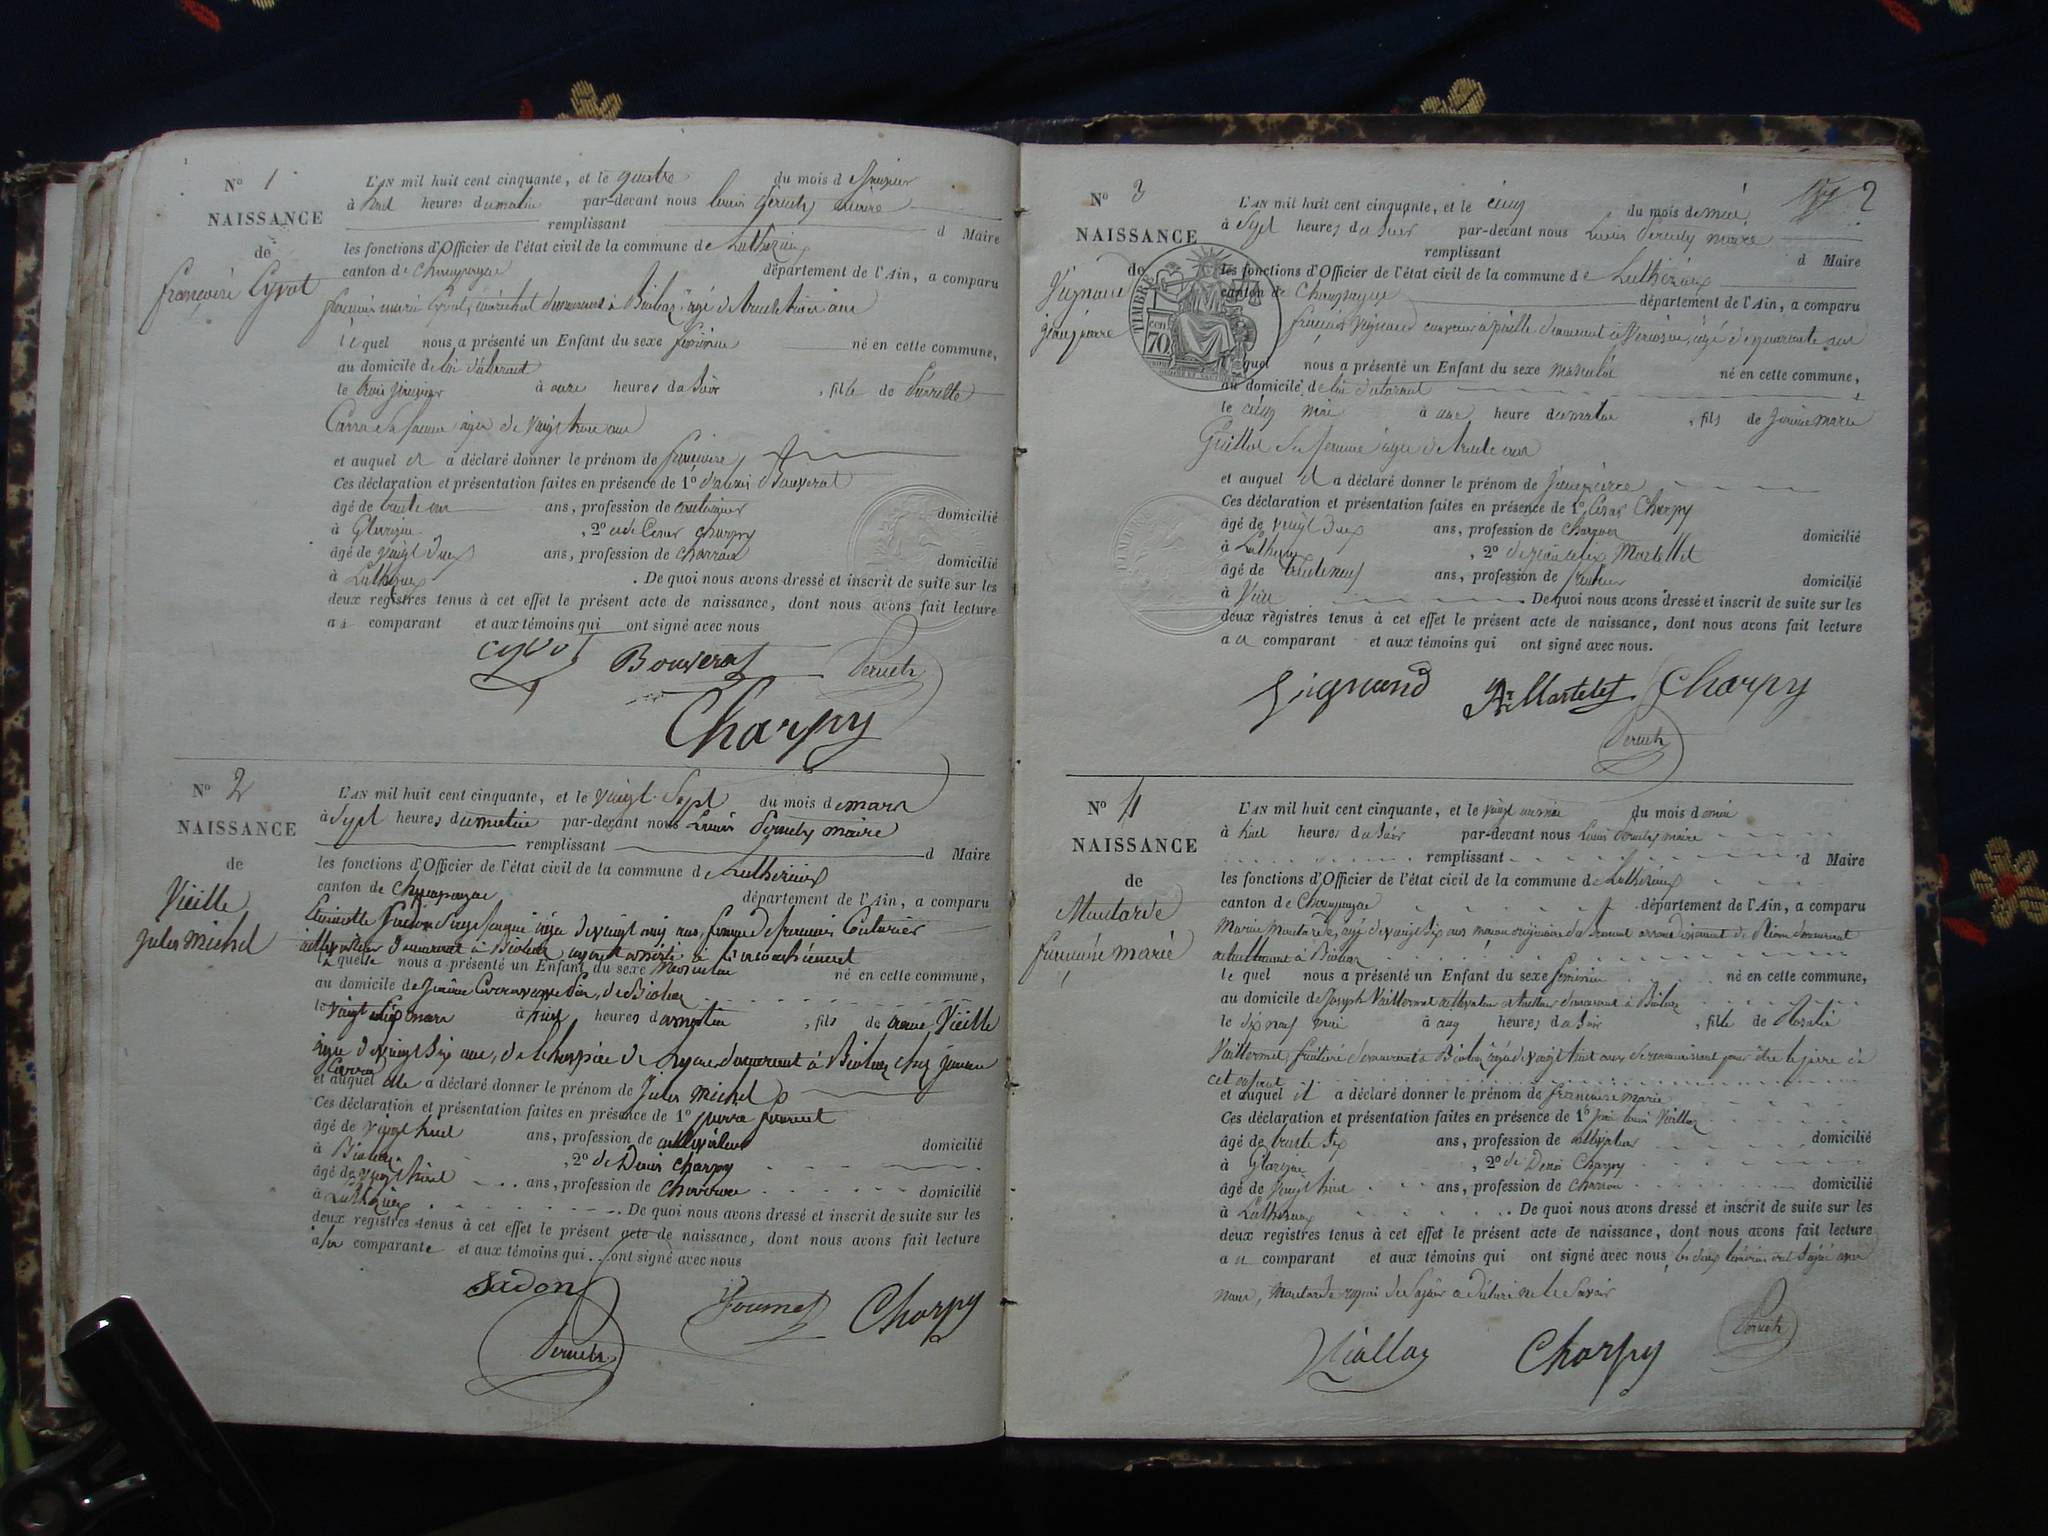 N° 1
NAISSANCE
de
françoise Cyvot
L'AN mil huit cent cinquante, et le quatre du mois de Janvier
à huit heures du matin par-devant nous Louis Peruetz maire
remplissant d Maire
les fonctions d'Officier de l'état civil de la commune de Luthézieu
canton de Champagne département de l'Ain, a comparu
françois marie Cyvot, maréchal demeurant à Bioleaz âgé de trente trois ans
lequel nous a présenté un Enfant du sexe féminin né en cette commune,
au domicile de lui déclarant
le trois Janvier à onze heures du Soir, fille de
Carra Sa femme âgée de vingt trois ans
et auquel il a déclaré donner le prénom de françoise
Ces déclaration et présentation faites en présence de 1° Bouverat
âgé de trente un ans, profession de domicilié
à , 2° de César Charpy
âgé de vingt deux ans, profession de charron domicilié
à Luthézieu . De quoi nous avons dressé et inscrit de suite sur les
deux registres tenus à cet effet le présent acte de naissance, dont nous avons fait lecture
au comparant et aux témoins qui ont signé avec nous
Cyvot Bouverat Peruetz
Charpy
N° 2
NAISSANCE
de
Vieille
jules michel
L'AN mil huit cent cinquante, et le vingt Sept du mois de mars
à Sept heures du matin par-devant nous Louis Peruetz maire
remplissant d Maire
les fonctions d'Officier de l'état civil de la commune de Luthézieu
canton de Champagne département de l'Ain, a comparu
Sage femme âgée de vingt ans, femme de francois Couturier
cultivateur demeurant à Bioleaz
laquelle nous a présenté un Enfant du sexe Masculin né en cette commune,
au domicile de Carra de Bioleaz
le vingt Six mars à huit heures du matin, fils de Vieille
âgée de vingt Six ans, de l'hospice de demeurant à Bioleaz chez
Carra
et auquel elle a déclaré donner le prénom de Jules Michel
Ces déclaration et présentation faites en présence de 1°
âgé de vingt huit ans, profession de cultivateur domicilié
à , 2° de Denis Charpy
âgé de vingt huit ans, profession de charron domicilié
à Luthézieu . De quoi nous avons dressé et inscrit de suite sur les
deux registres tenus à cet effet le présent acte de naissance, dont nous avons fait lecture
à la comparante et aux témoins qui ont signé avec nous
Sadon Fournet Charpy
Peruetz
2
N° 3
NAISSANCE
de
Vignand
jean pierre
TIMBRE
70 cen
L'AN mil huit cent cinquante, et le cinq du mois de mai
à Sept heures du Soir par-devant nous Louis Peruetz maire
remplissant d Maire
les fonctions d'Officier de l'état civil de la commune de Luthézieu
canton de Champagne département de l'Ain, a comparu
françois Vignand demeurant à âgé de quarante ans
quel nous a présenté un Enfant du sexe masculin né en cette commune,
au domicile de lui déclarant
le cinq mai à une heure du matin, fils de Jeanne marie
Guillot Sa femme âgée de trente ans
et auquel il a déclaré donner le prénom de Jean pierre
Ces déclaration et présentation faites en présence de 1° César Charpy
âgé de vingt deux ans, profession de charron domicilié
à Luthézieu , 2° de Martellet
âgé de trente neuf ans, profession de domicilié
à Vieu De quoi nous avons dressé et inscrit de suite sur les
deux registres tenus à cet effet le présent acte de naissance, dont nous avons fait lecture
au comparant et aux témoins qui ont signé avec nous.
Vignand Martelet Charpy
Peruetz
N° 4
NAISSANCE
de
Moutarde
françoise marie
L'AN mil huit cent cinquante, et le vingt du mois de mai
à huit heures du Soir par-devant nous Louis Peruetz maire
remplissant d Maire
les fonctions d'Officier de l'état civil de la commune de Luthézieu
canton de Champagne département de l'Ain, a comparu
Marien Moutarde, âgé de vingt Six ans maçon originaire de arrondissement de Riom demeurant
actuellement à Bioleaz
le quel nous a présenté un Enfant du sexe féminin né en cette commune,
au domicile de Joseph Vuillermet cultivateur et tailleur demeurant à Bioleaz
le dix neuf mai à cinq heures du Soir, fille de Rosalie
Vuillermet, demeurant à Bioleaz âgée de vingt huit ans Se reconnaissant pour être le père de
cet enfant
et auquel il a déclaré donner le prénom de françoise marie
Ces déclaration et présentation faites en présence de 1°
âgé de trente Six ans, profession de cultivateur domicilié
à , 2° de Denis Charpy
âgé de vingt huit ans, profession de charron domicilié
à Luthézieu . De quoi nous avons dressé et inscrit de suite sur les
deux registres tenus à cet effet le présent acte de naissance, dont nous avons fait lecture
au comparant et aux témoins qui ont signé avec nous, les deux témoins ont signé avec
nous, Moutarde requis de Signer a déclaré ne le Savoir
Charpy Peruetz